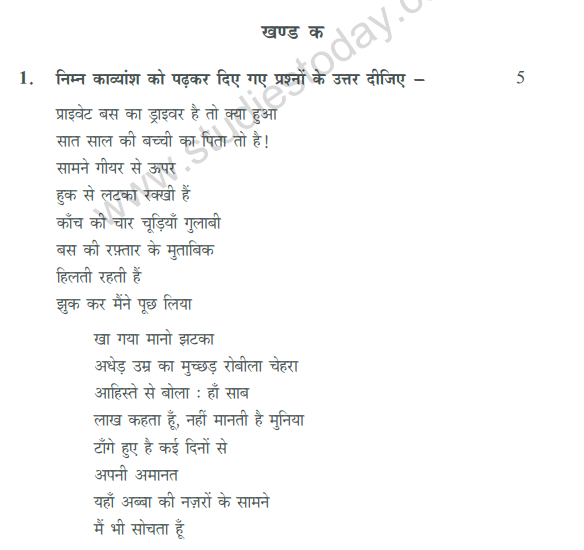 खण्ड क
1. निम्न काव्यांश को पढ़कर दिए गए प्रश्नों के उत्तर दीजिए – 5
प्राइवेट बस का ड्राइवर है तो क्या हुआ
सात साल की बच्ची का पिता तो है!
सामने गीयर से ऊपर
हुक से लटका रक्खी हैं
काँच की चार चूड़ियाँ गुलाबी
बस की रफ़्तार के मुताबिक
हिलती रहती हैं
झुक कर मैंने पूछ लिया
खा गया मानो झटका
अधेड़ उम्र का मुच्छड़ रोबीला चेहरा
आहिस्ते से बोला : हाँ साब
लाख कहता हूँ, नहीं मानती है मुनिया
टाँगे हुए है कई दिनों से
अपनी अमानत
यहाँ अब्बा की नज़रों के सामने
मैं भी सोचता हूँ
www.studiestoday.com